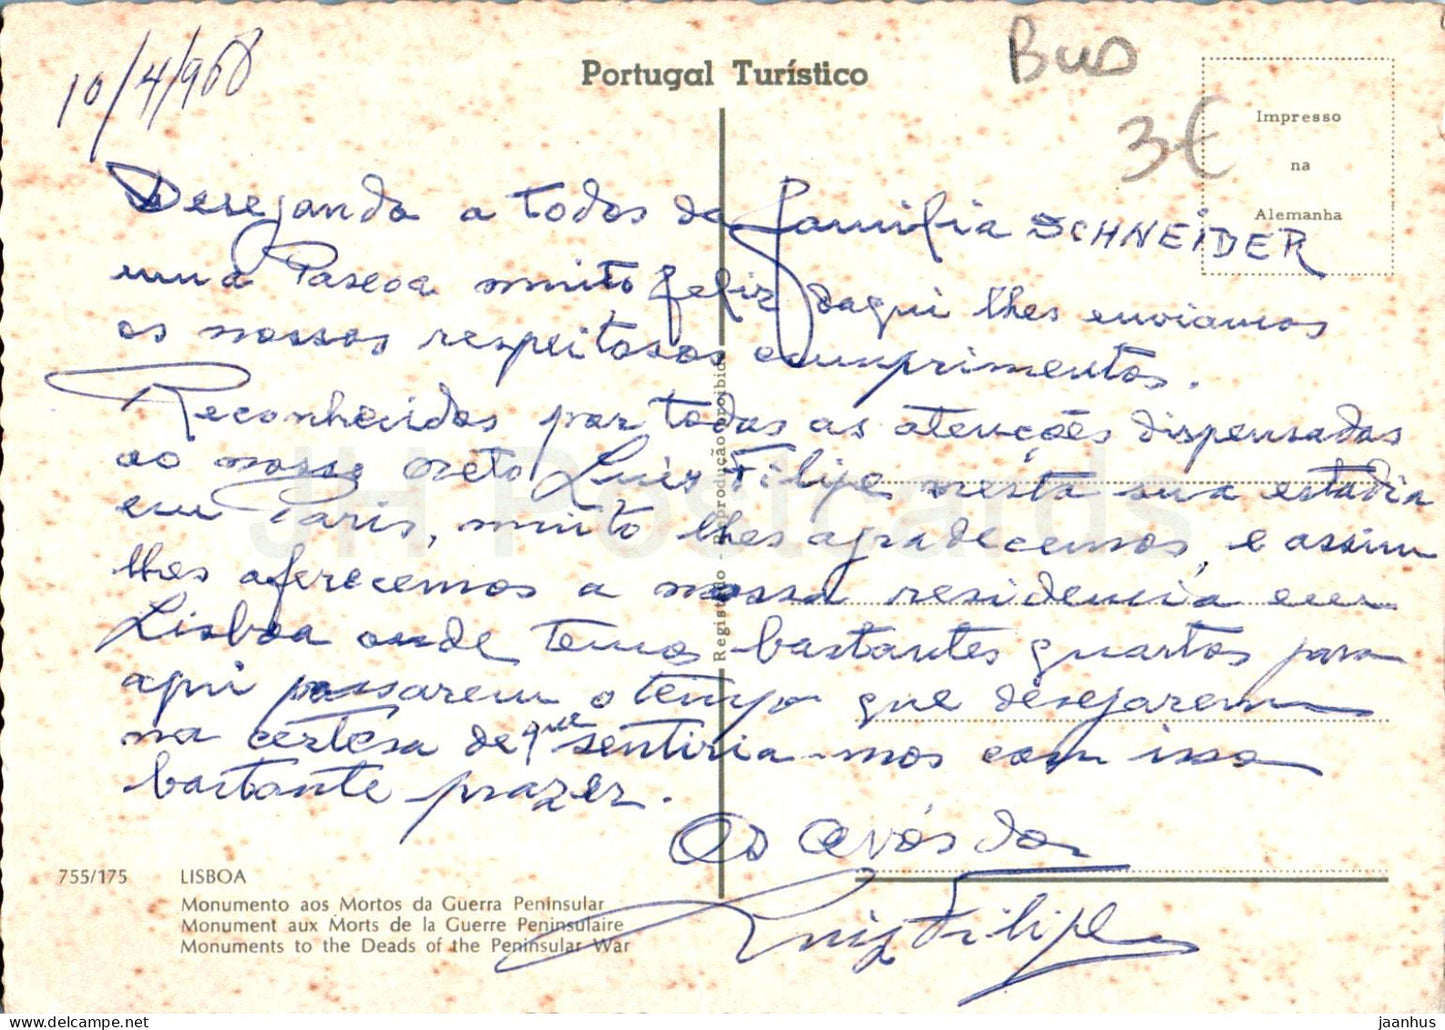 10/4/968
Portugal Turístico
Bus
3€
Impresso
na
Alemanha
Desejando a todos da familia SCHNEIDER
uma Pascoa muito feliz daqui lhes enviamos
os nossos respeitosos cumprimentos.
Reconhecidos por todas as atenções dispensadas
ao nosso neto Luiz Filipe nesta sua estadia
em Paris, muito lhes agradecemos, e assim
lhes oferecemos a nossa residencia em
Lisboa onde temos bastantes quartos para
aqui passarem o tempo que desejarem
na certesa de que sentiria-mos com isso
bastante prazer.
Os avós do
Luiz Filipe
Registado - Reprodução proibida
755/175 LISBOA
Monumento aos Mortos da Guerra Peninsular
Monument aux Morts de la Guerre Peninsulaire
Monuments to the Deads of the Peninsular War
JH Postcards
hippostcard.com/store/jaanhus